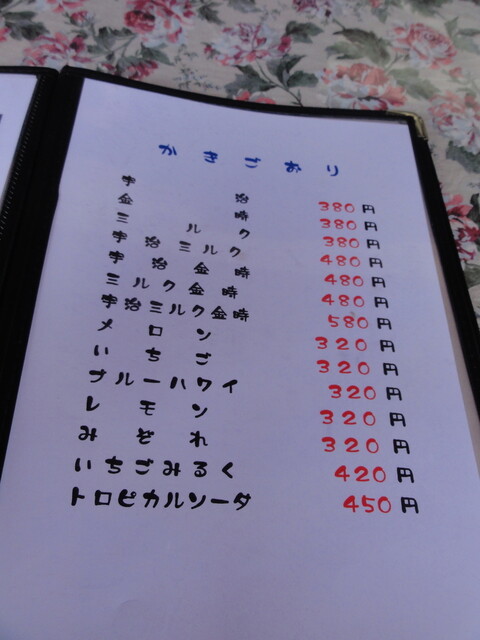 かきごおり
宇治 380円
金時 380円
ミルク 380円
宇治ミルク 480円
宇治金時 480円
ミルク金時 480円
宇治ミルク金時 580円
メロン 320円
いちご 320円
ブルーハワイ 320円
レモン 320円
みぞれ 320円
いちごみるく 420円
トロピカルソーダ 450円